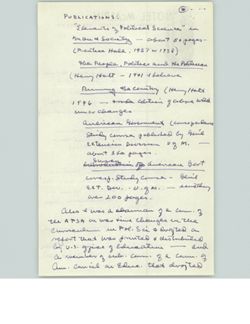 PUBLICATIONS:
"Elements of Political Science" in
Man & Society — about 50 pages
(Prentice Hall, 1937 & 1938)
The People, Politics and the Politician
(Henry Holt — 1941 &
Running the Country (Henry Holt
1946 — under edition of above with
minor changes
American Government (correspondence
study course published by Genl
Extension Division of M. —
about 250 pages
Survey American Govt
corresp. study course — Genl
Ext. Div. — U. of M. — another
over 200 pages.
Also I was a chairman of a Com. of
the APSA on
curriculum in Pol. Sci & drafted a
report that was printed & distributed
by U.S. Office of Education — and
a member of sub. Com. of a Com. of
Am. Council on Educ. that drafted